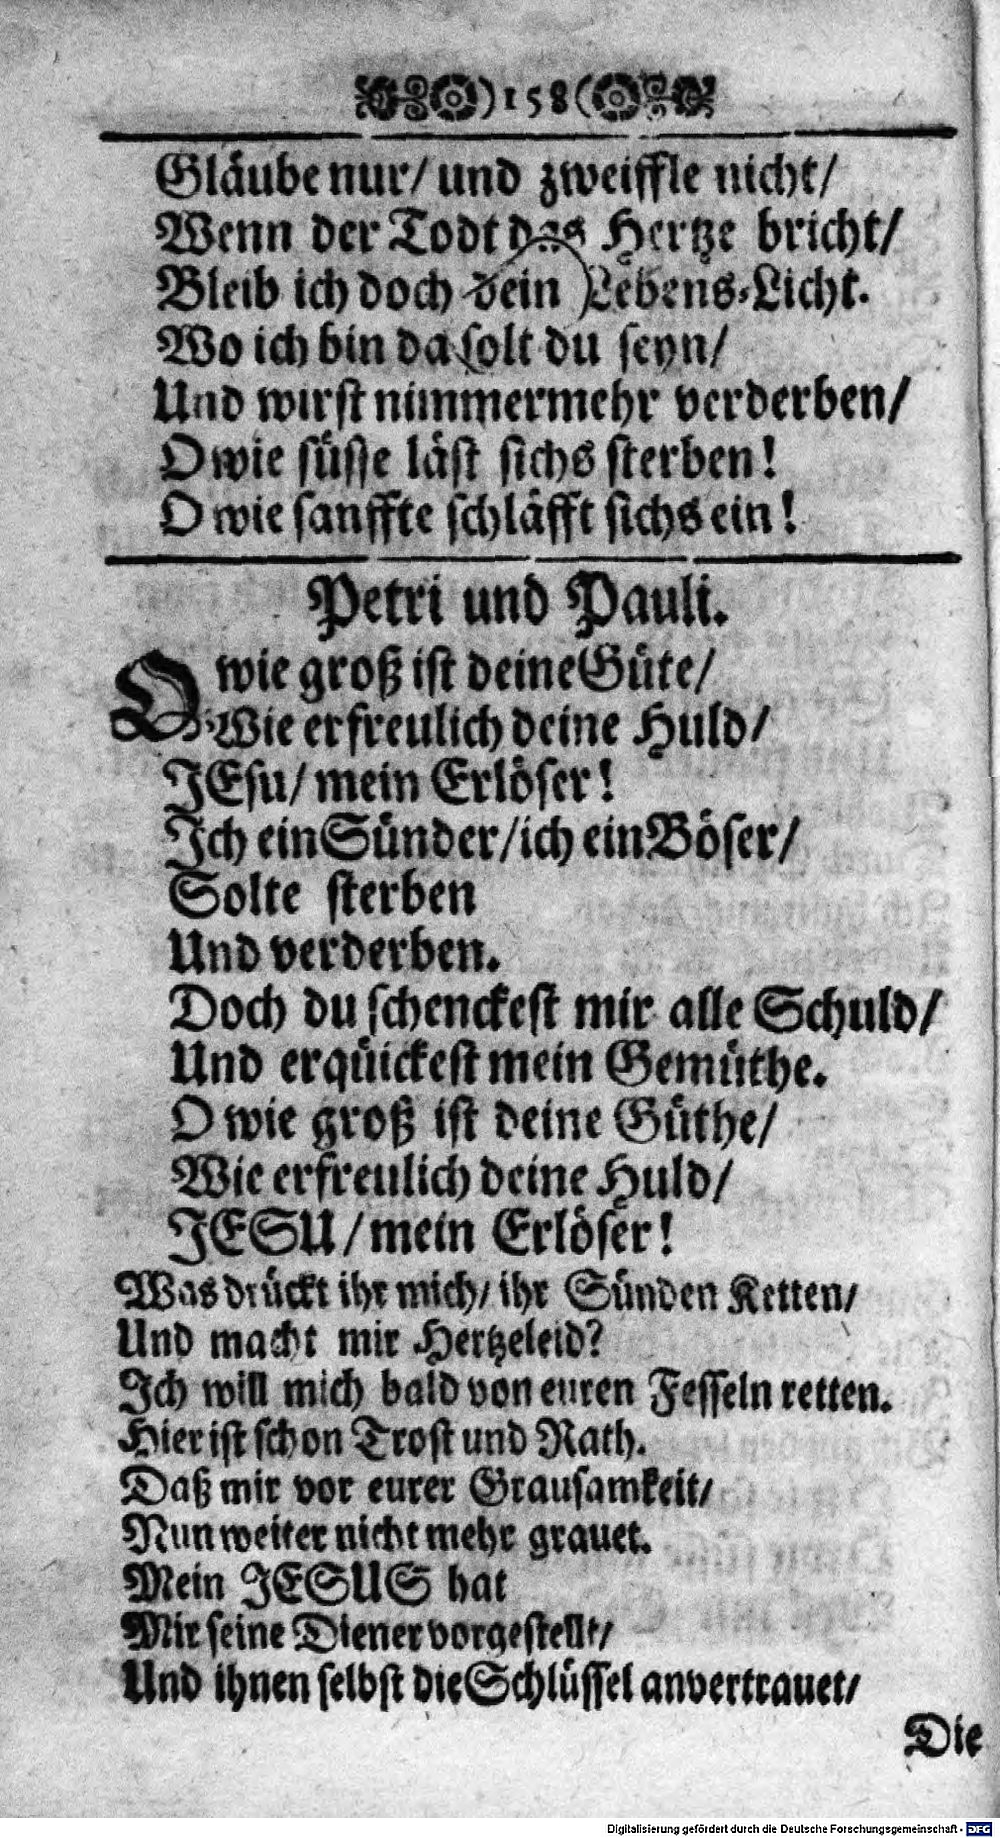 )158(
Gläube nur/ und zweiffle nicht/
Wenn der Todt das Hertze bricht/
Bleib ich doch dein Lebens-Licht.
Wo ich bin da solt du seyn/
Und wirst nimmermehr verderben/
O wie süsse läst sichs sterben!
O wie sanffte schläfft sichs ein!
Petri und Pauli.
O wie groß ist deine Güte/
Wie erfreulich deine Huld/
JEsu/ mein Erlöser!
Ich ein Sünder/ ich ein Böser/
Solte sterben
Und verderben.
Doch du schenckest mir alle Schuld/
Und erqüickest mein Gemüthe.
O wie groß ist deine Güthe/
Wie erfreulich deine Huld/
JESU/ mein Erlöser!
Was drückt ihr mich/ ihr Sünden Ketten/
Und macht mir Hertzeleid?
Ich will mich bald von euren Fesseln retten.
Hier ist schon Trost und Rath.
Daß mir vor eurer Grausamkeit/
Nun weiter nicht mehr grauet.
Mein JESUS hat
Mir seine Diener vorgestellt/
Und ihnen selbst die Schlüssel anvertrauet/
Die
Digitalisierung gefördert durch die Deutsche Forschungsgemeinschaft - DFG